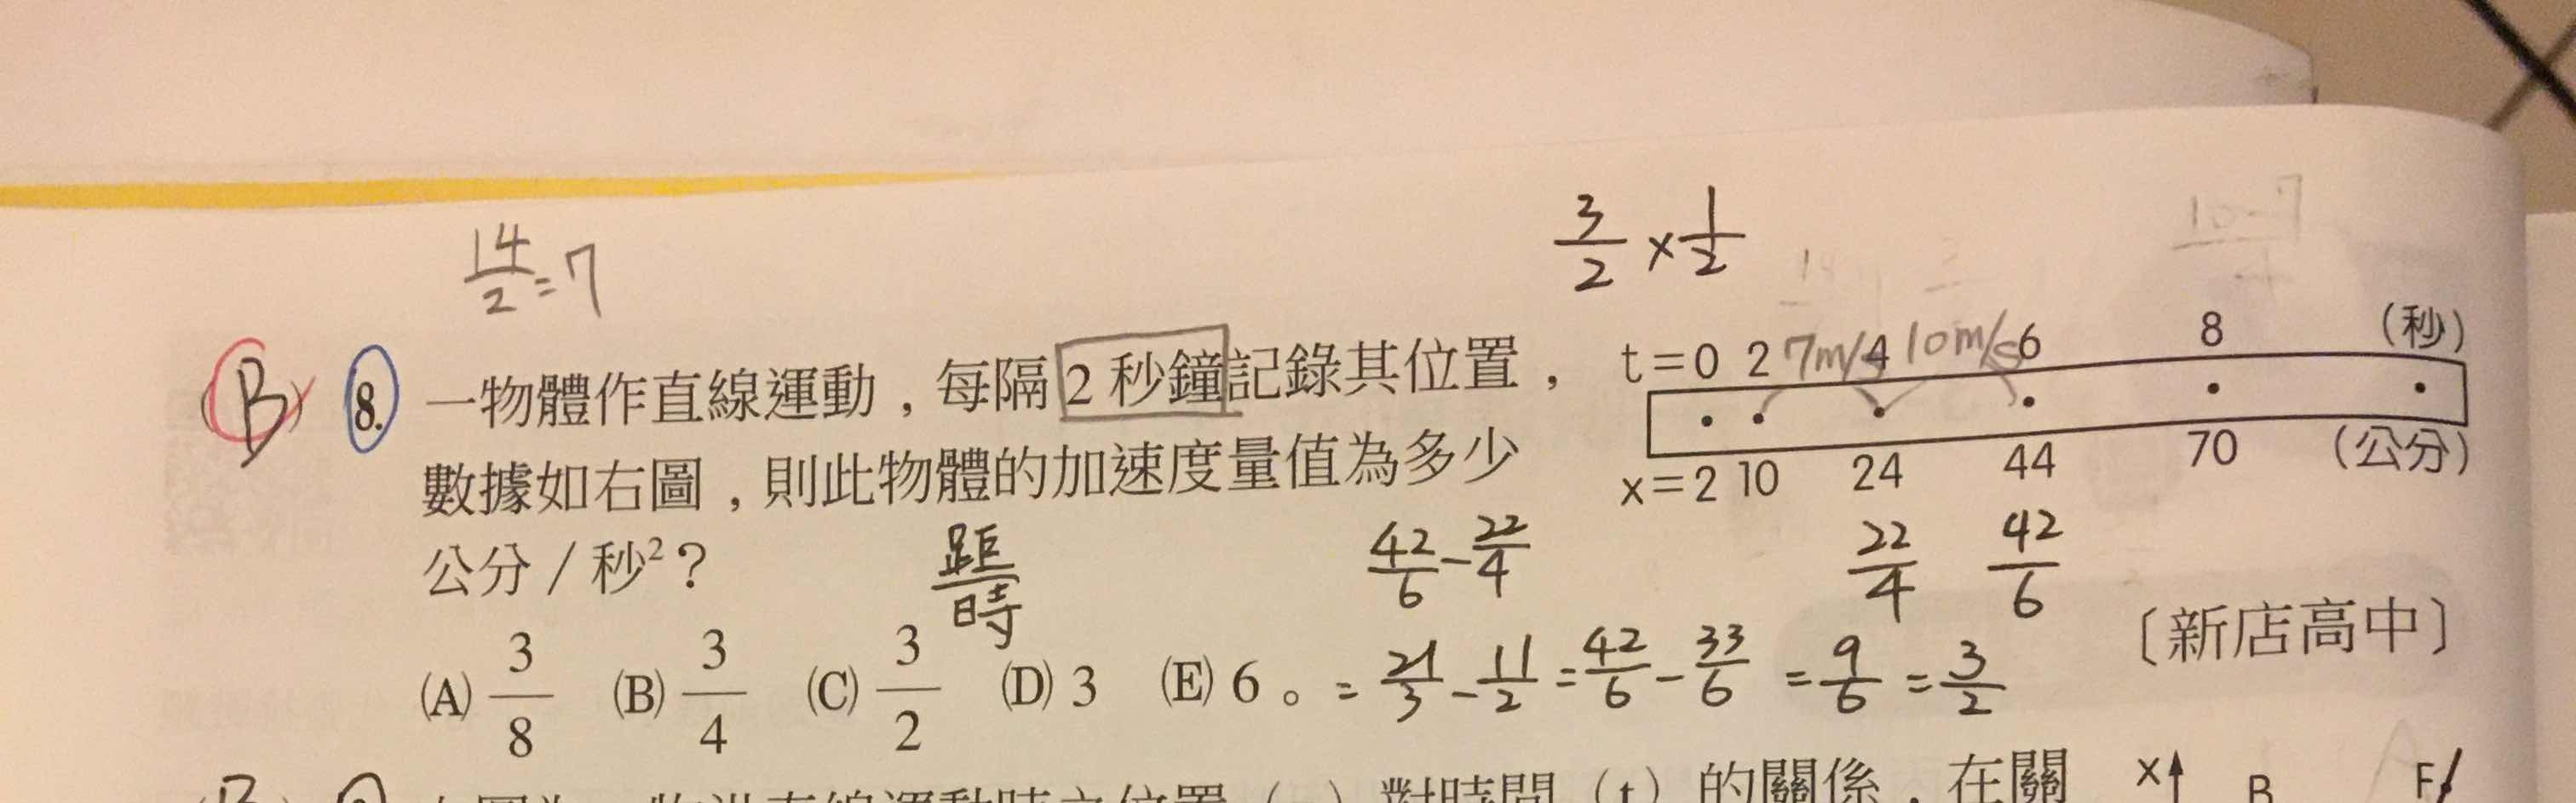 14/2=7
3/2×1/2
(B) 8. 一物體作直線運動，每隔 2 秒鐘記錄其位置，
數據如右圖，則此物體的加速度量值為多少
公分／秒²？
t=0 2 4 6 8 (秒)
7m/s 10m/s
x=2 10 24 44 70 (公分)
距/時
42/6-22/4
22/4 42/6
〔新店高中〕
(A) 3/8 (B) 3/4 (C) 3/2 (D) 3 (E) 6。
=21/3-11/2=42/6-33/6=9/6=3/2
x
B
F